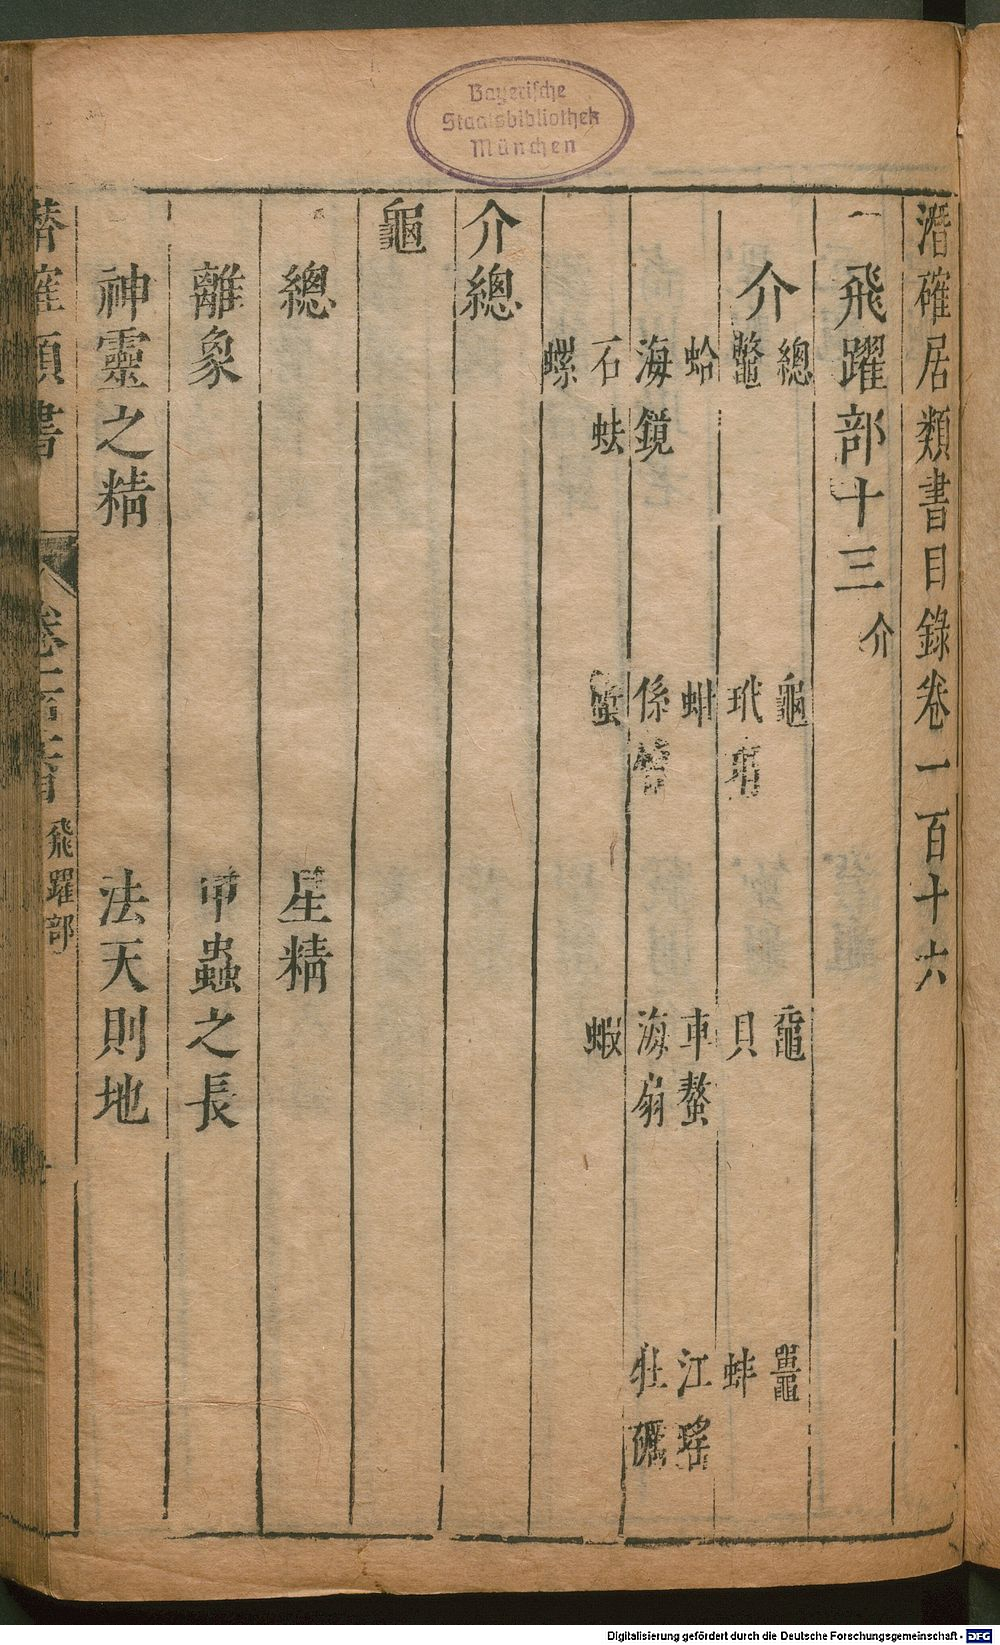 Bayerische
Staatsbibliothek
München
潛確居類書目錄卷一百十六
一飛躍部十三 介
介
總 龜 黿 鼉
鼈 玳瑁 貝 蚌
蛤 蚶 車螯 江瑤
海鏡 係臂 海扇 牡礪
石蚨 蝦
螺
介總
龜
總 星精
離象 甲蟲之長
神靈之精 法天則地
潛確類書 卷一百十六 飛躍部
Digitalisierung gefördert durch die Deutsche Forschungsgemeinschaft - DFG